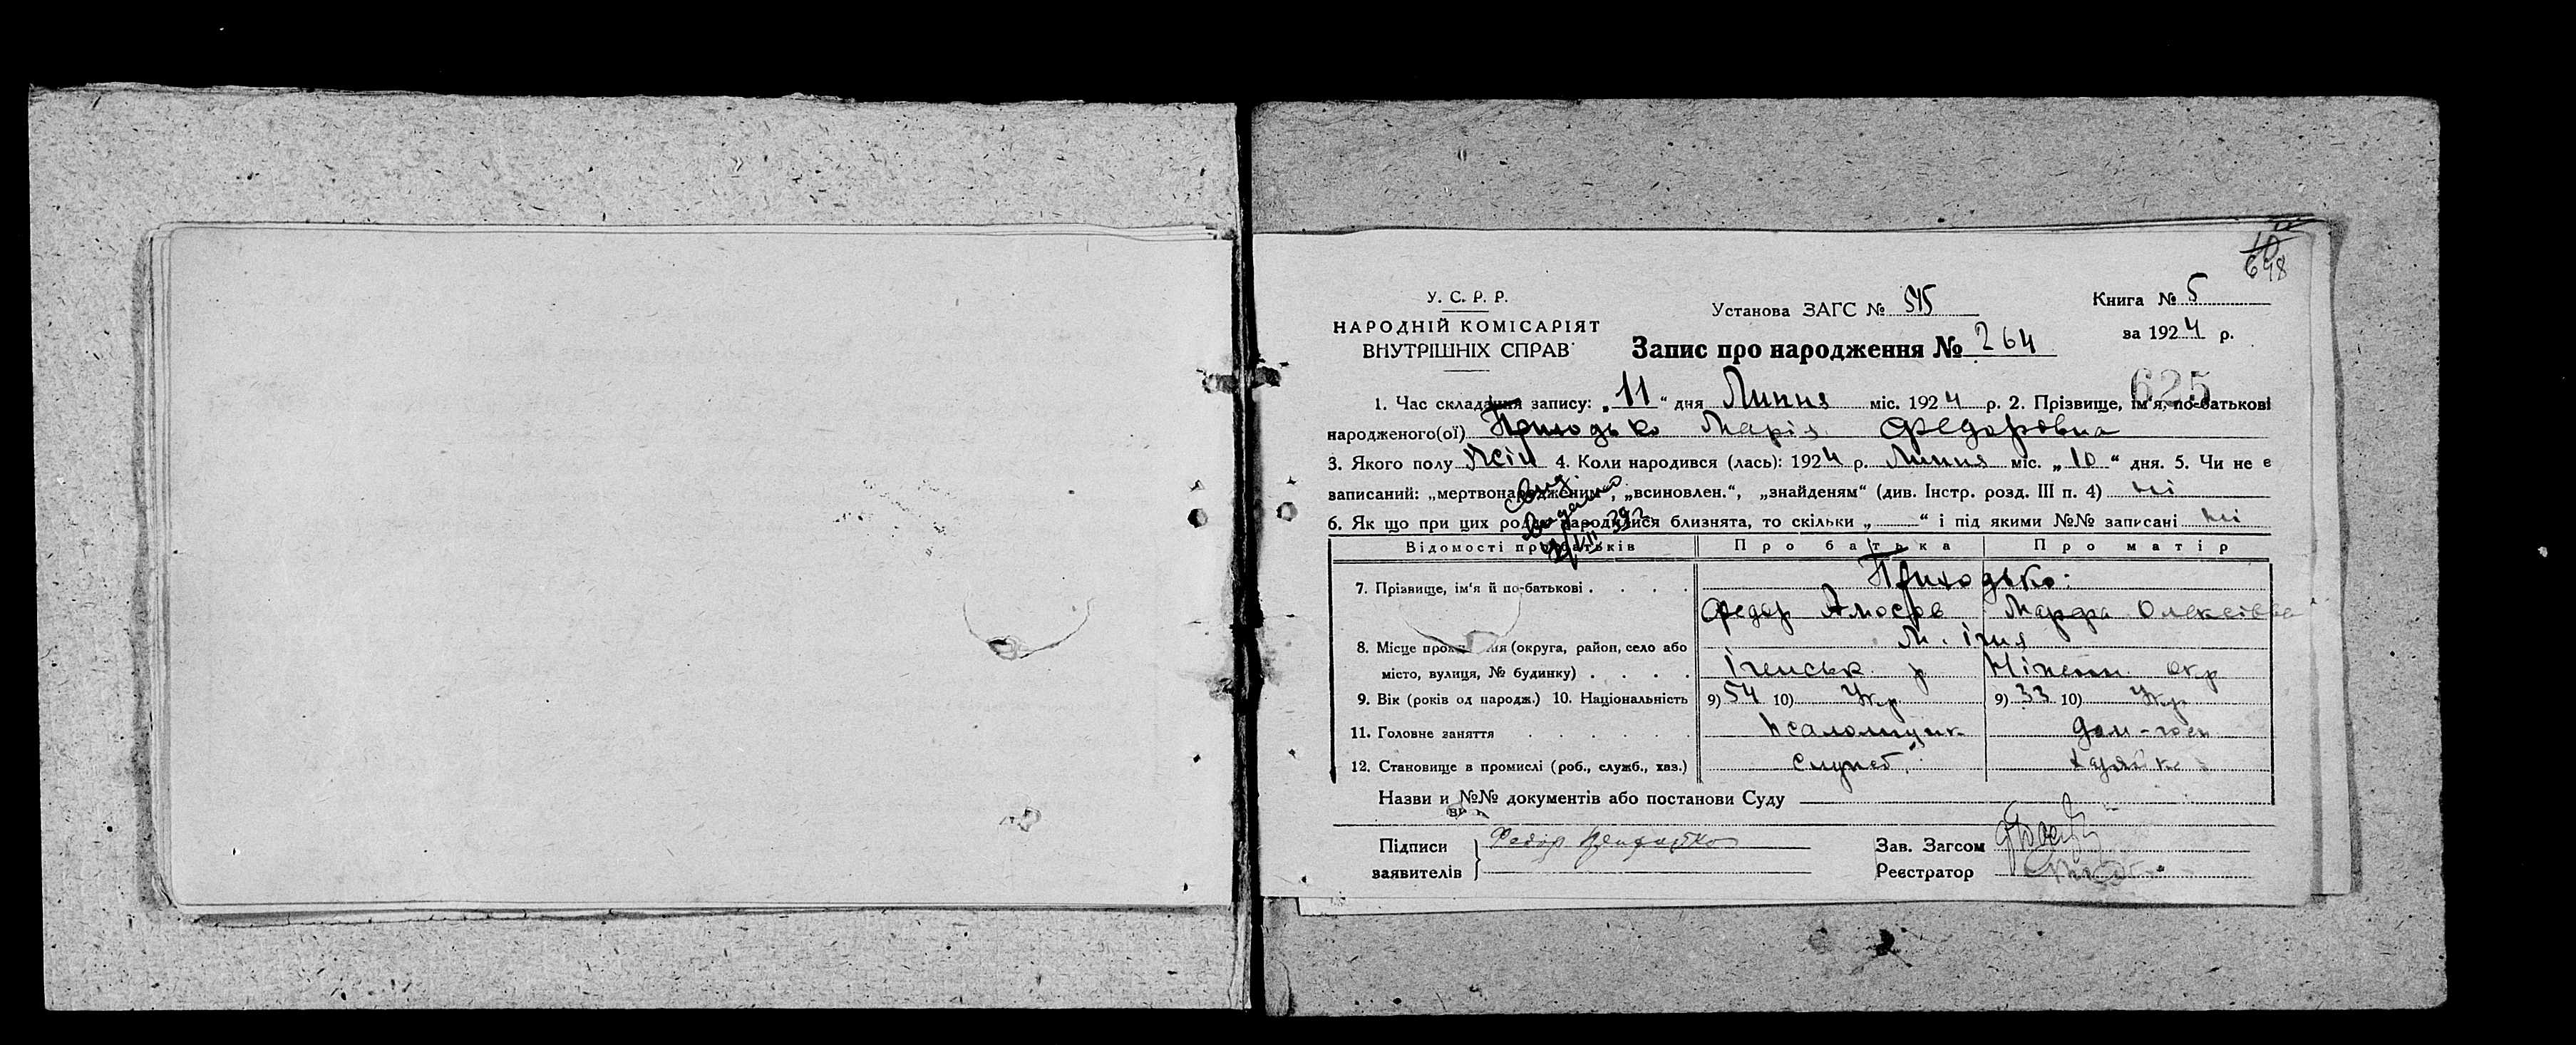 10
698
У. С. Р. Р.
НАРОДНІЙ КОМІСАРІЯТ
ВНУТРІШНІХ СПРАВ
Установа ЗАГС № 545
Книга № 5
за 1924 р.
Запис про народження № 264
625
1. Час складання запису: „11“ дня Липня міс. 1924 р. 2. Прізвище, ім'я, по-батькові
народженого(ої) Приходько Марія Федоровна
3. Якого полу Жін 4. Коли народився (лась): 1924 р. Липня міс. „10“ дня. 5. Чи не є
записаний: „мертвонародженим“, „всиновлен.“, „знайденям“ (див. Інстр. розд. III п. 4) ні
6. Як що при цих родах народилися близнята, то скільки „ “ і під якими №№ записані ні
Відомості про батьків Про батька Про матір
7. Прізвище, ім'я й по-батькові . . . . Приходько
Федор Амосов Марфа Олексієвна
8. Місце прожи ня (округа, район, село або М. Ічня
місто, вулиця, № будинку) . . . . Іченськ р Ніженн окр
9. Вік (років од народж.) 10. Національність 9) 54 10) Укр 9) 33 10) Укр
11. Головне заняття . . . . . . псаломщик дом-госп
12. Становище в промислі (роб., служб., хаз.) служб. хазяйка
Назви и №№ документів або постанови Суду
Підписи
заявителів
Федор Приходько
Зав. Загсом
Реєстратор